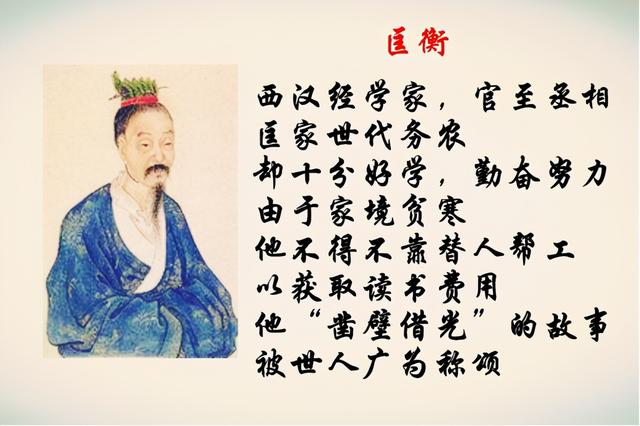 匡衡
西汉经学家，官至丞相
匡家世代务农
却十分好学，勤奋努力
由于家境贫寒
他不得不靠替人帮工
以获取读书费用
他“凿壁借光”的故事
被世人广为称颂